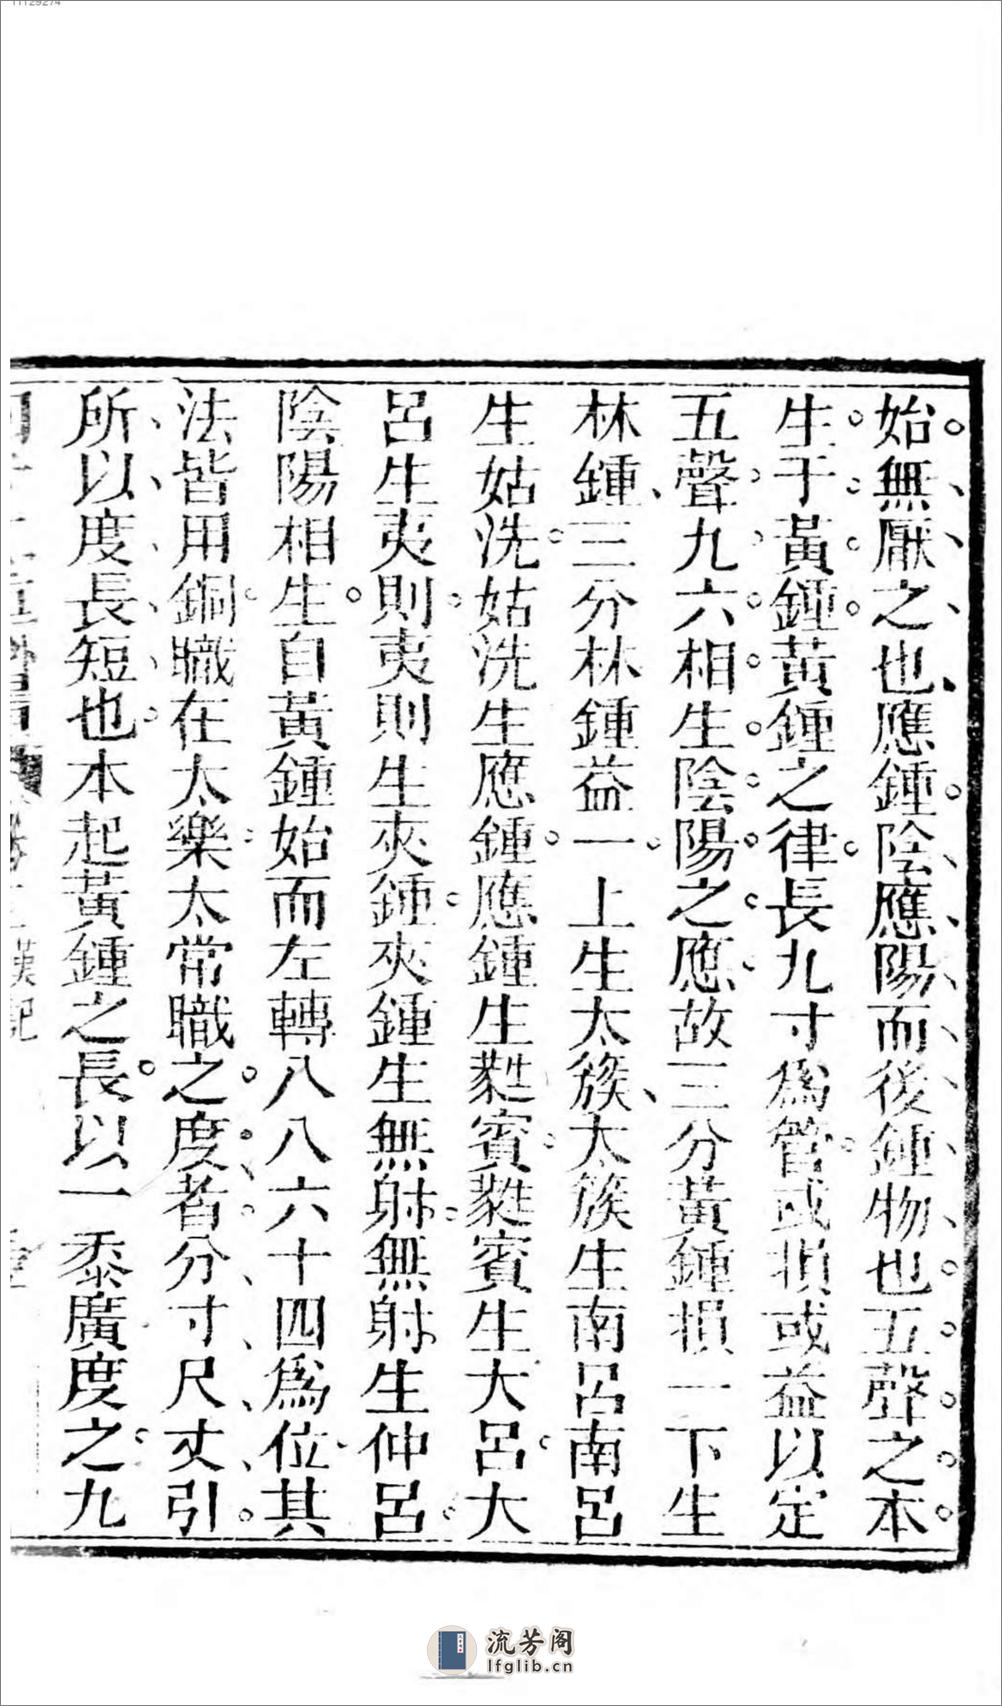 11129274
始無厭之也應鍾陰應陽而後鍾物也五聲之本
生于黃鍾黃鍾之律長九寸爲管或損或益以定
五聲九六相生陰陽之應故三分黃鍾損一下生
林鍾三分林鍾益一上生太簇太簇生南呂南呂
生姑洗姑洗生應鍾應鍾生蕤賓蕤賓生大呂大
呂生夷則夷則生夾鍾夾鍾生無射無射生仲呂
陰陽相生自黃鍾始而左轉八八六十四爲位其
法皆用銅職在太樂太常職之度者分寸尺丈引
所以度長短也本起黃鍾之長以一黍廣度之九
漢記
流芳阁
lfglib.cn